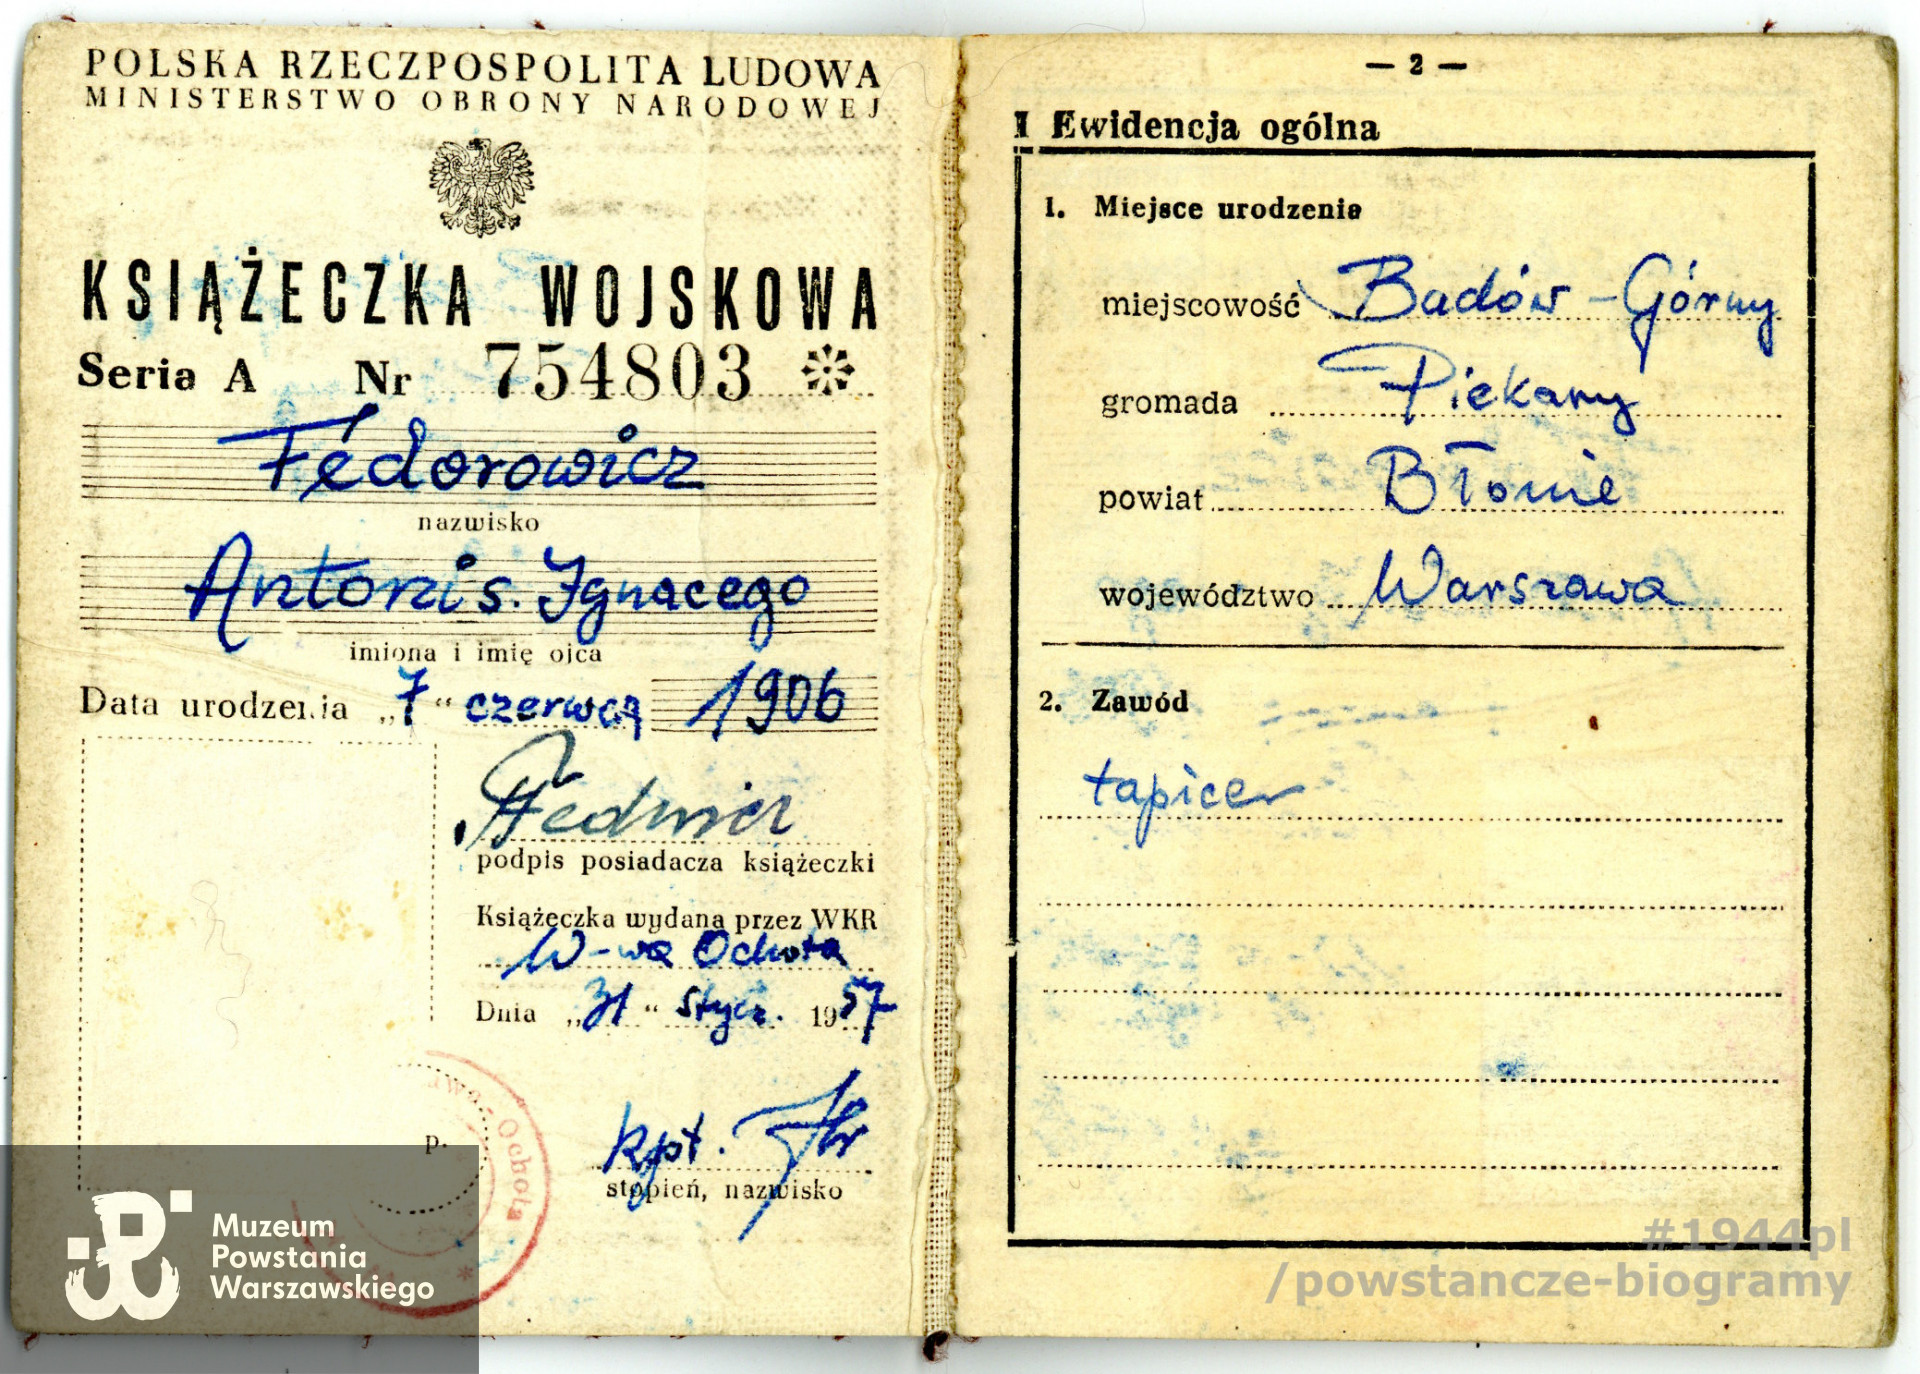 POLSKA RZECZPOSPOLITA LUDOWA
MINISTERSTWO OBRONY NARODOWEJ
KSIĄŻECZKA WOJSKOWA
Seria A Nr 754803
Fedorowicz
nazwisko
Antoni s. Ignacego
imiona i imię ojca
Data urodzenia „7“ czerwca 1906
podpis posiadacza książeczki
Książeczka wydana przez WKR
W-wa Ochota
Dnia „31“ stycz. 1957
p.
kpt.
stopień, nazwisko
Ochota
Muzeum
Powstania
Warszawskiego
— 2 —
I Ewidencja ogólna
1. Miejsce urodzenia
miejscowość Badów-Górny
gromada Piekary
powiat Błonie
województwo Warszawa
2. Zawód
tapicer
#1944pl
/powstancze-biogramy